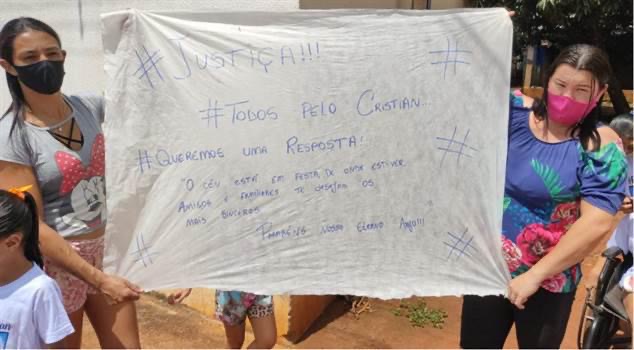 #Justiça!!!
#
#Todos pelo Cristian...
#Queremos uma Resposta!
#
"O céu está em festa, de onde estiver
Amigos e familiares te desejam os
mais sinceros
Parabéns nosso Eterno Anjo!!!"
#
#